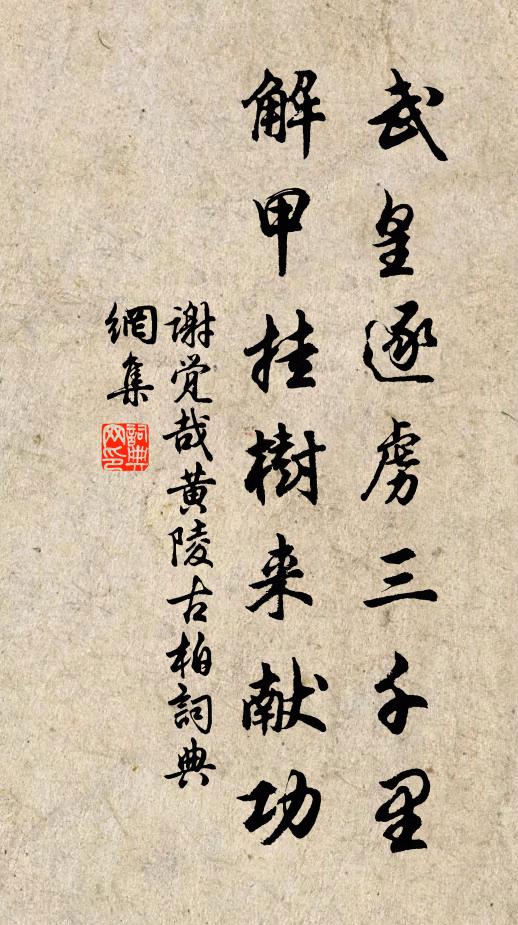 武皇逐虏三千里
解甲挂樹来献功
谢觉哉黄陵古柏詞典
網集
詞典
网印